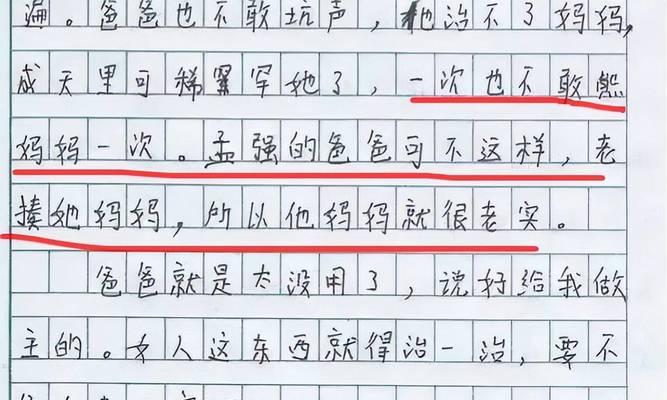 遍。爸爸也不敢坑声，他治不了妈妈，
成天里可稀罕她了，一次也不敢熊
妈妈一次。孟强的爸爸可不这样，老
揍她妈妈，所以他妈妈就很老实。
爸爸就是太没用了，说好给我做
主的。女人这东西就得治一治，要不